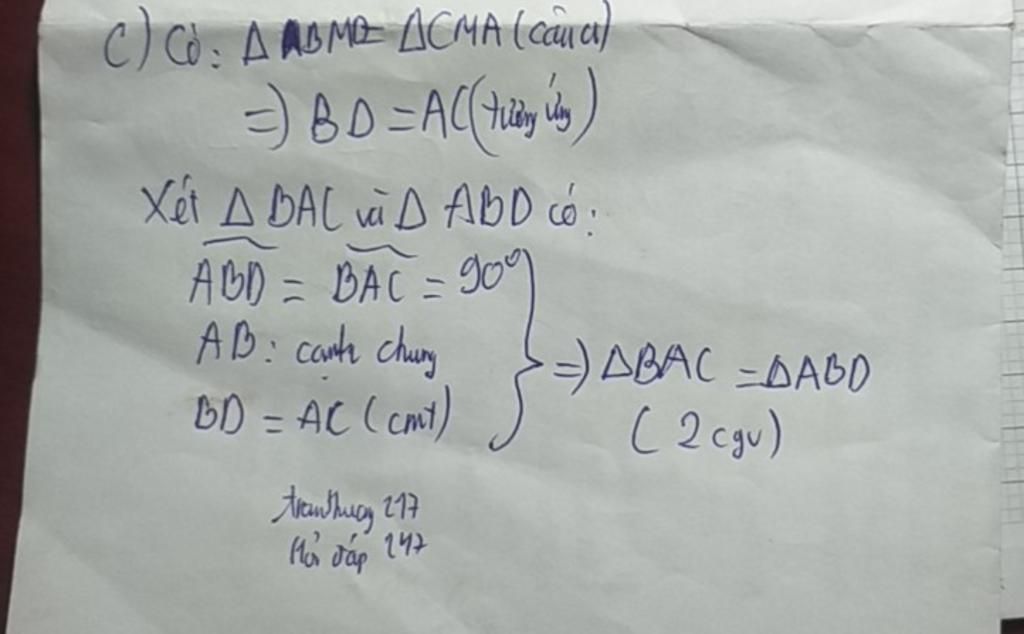 c) Có: Δ BMD = ΔCMA (câu a)
=) BD = AC (tương ứng)
Xét Δ BAC và Δ ABD có:
ABD = BAC = 90°
AB: cạnh chung
BD = AC (cmt)
=) ΔBAC = ΔABD
(2cgv)
217
Hỏi đáp 247